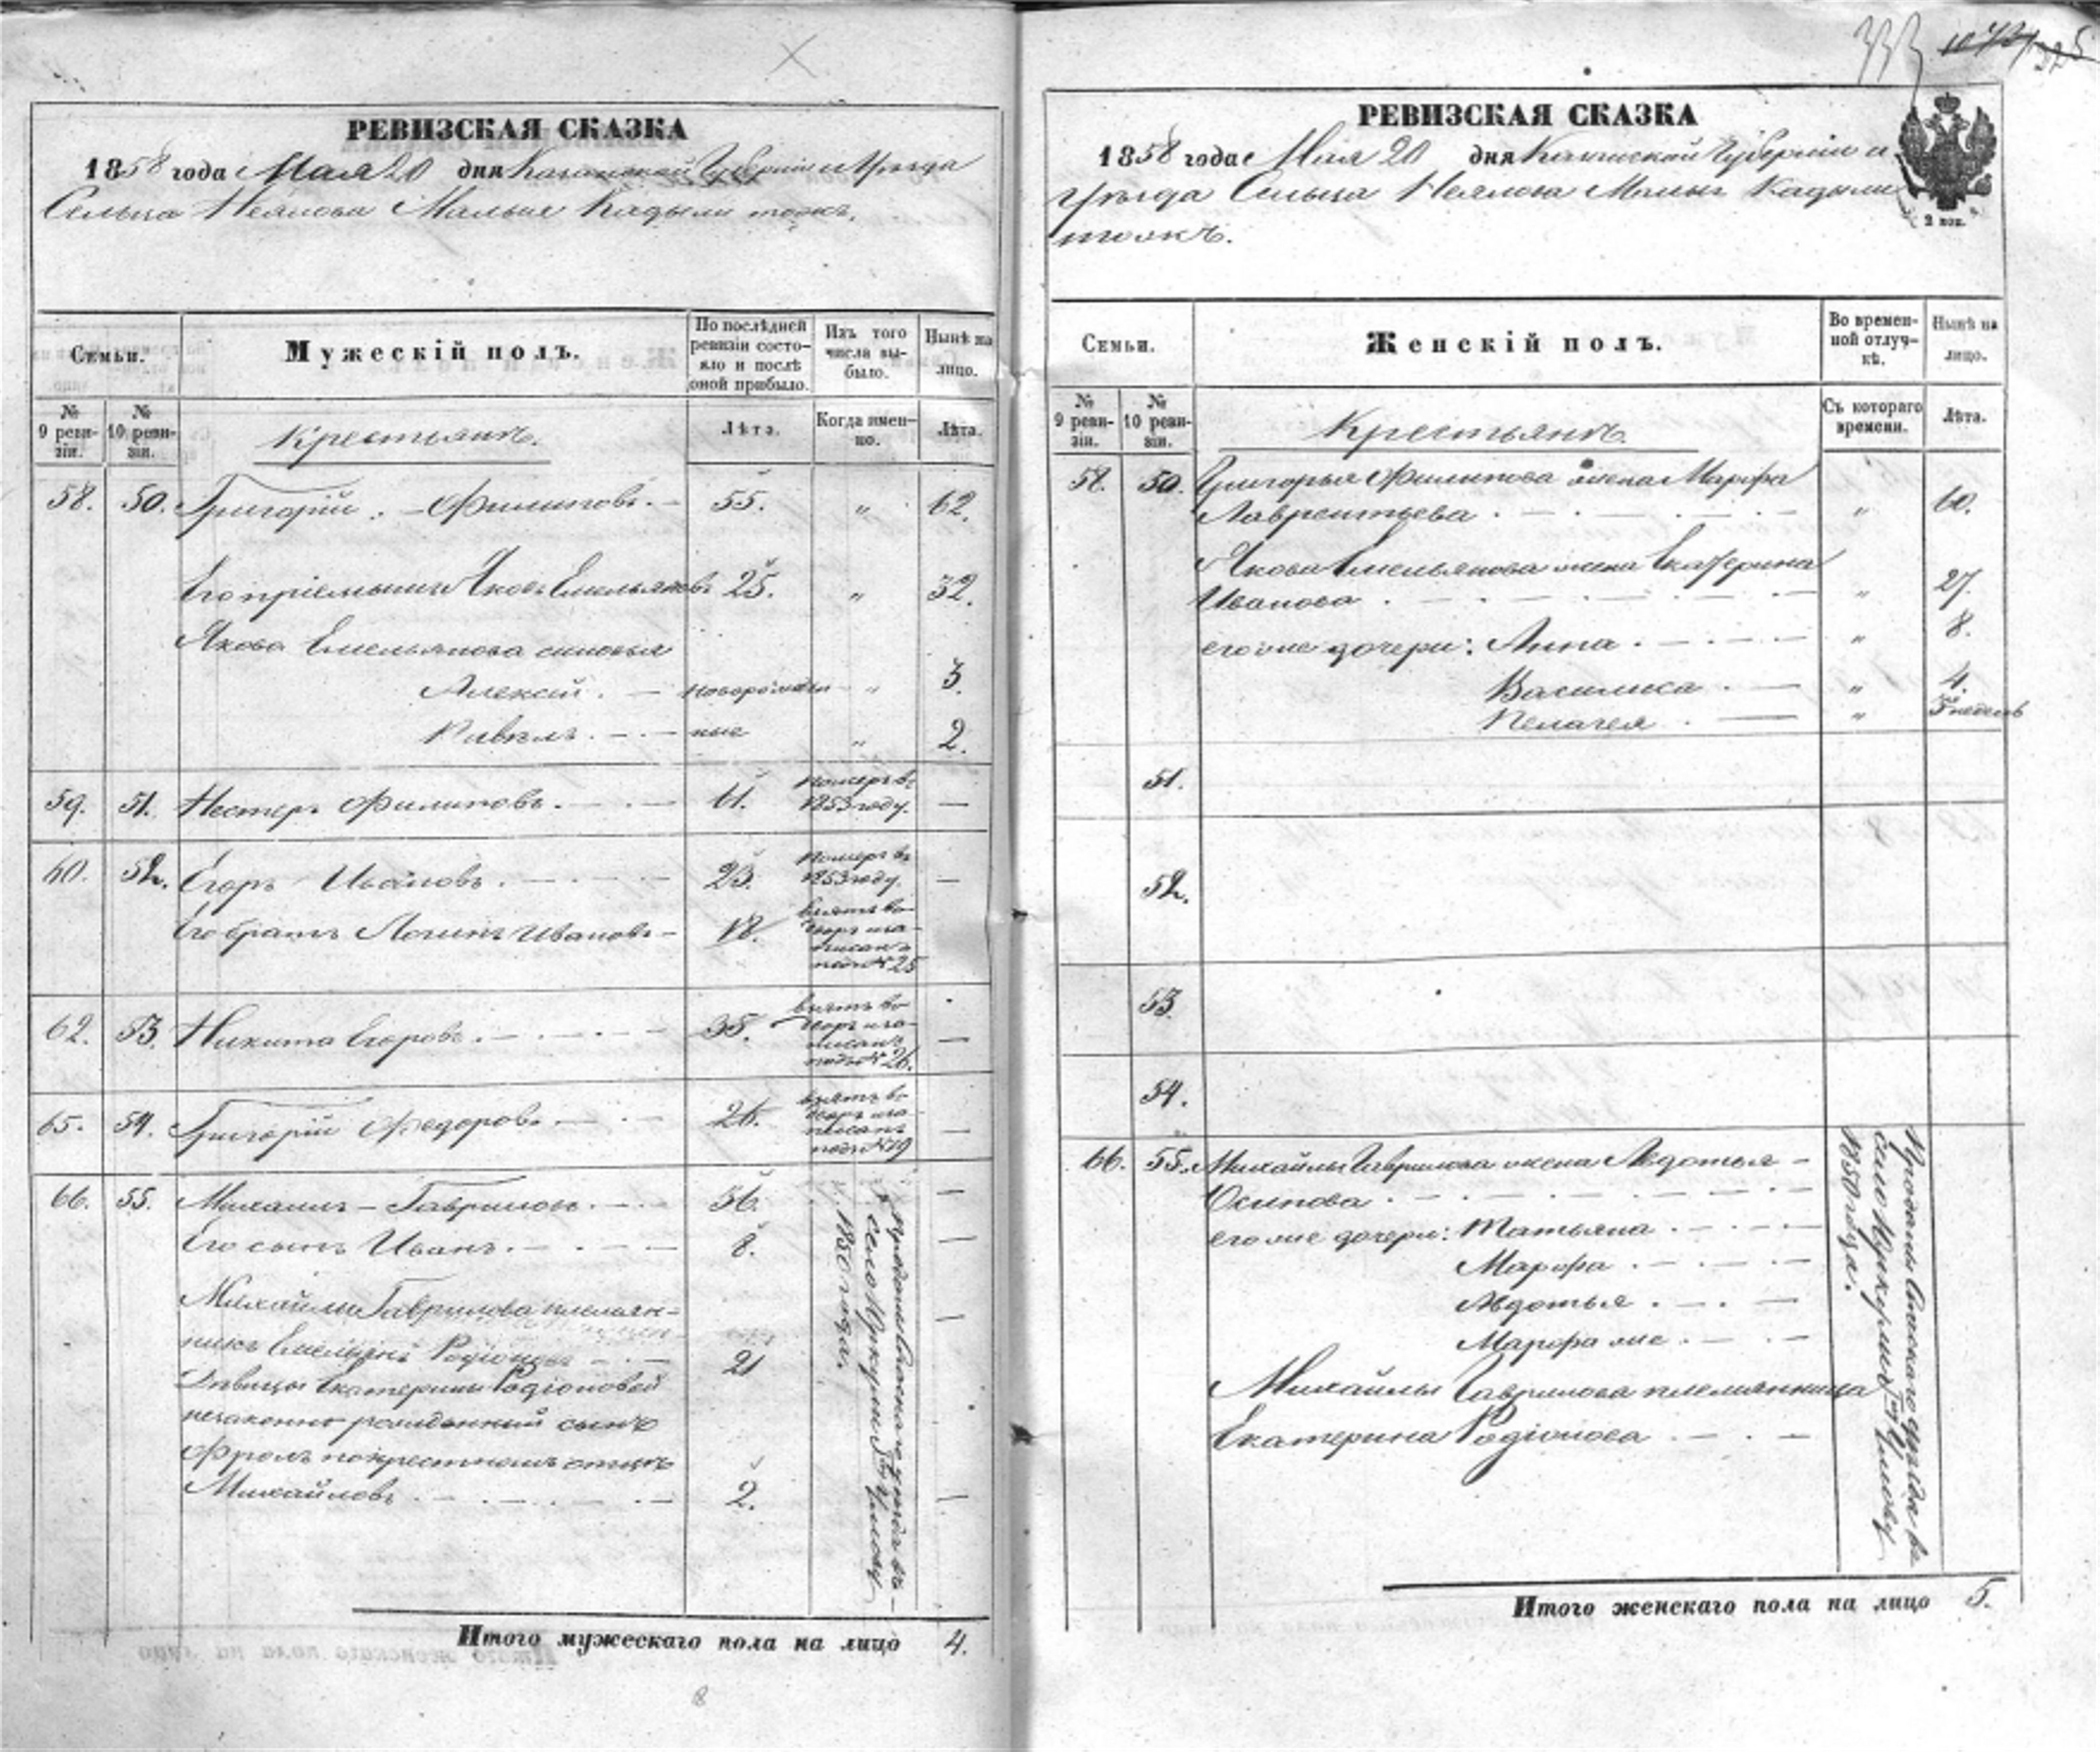 333 1072 325
РЕВИЗСКАЯ СКАЗКА
1858 года Мая 20 дня Казанской Губерніи и Уѣзда
Сельца Неялова Малые Кадыли тожъ.
Семьи.
Мужескій полъ.
По послѣдней ревизіи состояло и послѣ оной прибыло.
Изъ того числа выбыло.
Нынѣ на лицо.
№ 9 ревизіи.
№ 10 ревизіи.
Крестьянъ.
Лѣта.
Когда именно.
Лѣта.
58. 50. Григорій. — Филиповъ. — 55. „ 62.
Его пріемышъ Яковъ Емельяновъ 25. „ 32.
Якова Емельянова сыновья
Алексѣй. — новорожден- „ 3.
Павелъ. — ные „ 2.
59. 51. Нестеръ Филиповъ. — 61. померъ въ 1853 году. —
60. 52. Егоръ Ивановъ. — 23. померъ въ 1853 году. —
Его братъ Логинъ Ивановъ — 18. взятъ во дворъ и записанъ подъ № 25
62. 53. Никита Егоровъ. — 35. взятъ во дворъ и записанъ подъ № 26. —
65. 54. Григорій Федоровъ. — 26. взятъ во дворъ и записанъ подъ № 19 —
66. 55. Михаилъ — Гавриловъ. — 56. —
Его сынъ Иванъ. — 8. —
Михайлы Гаврилова племян-
никъ Емельянъ Родіоновъ — 21 —
Дѣвицы Екатерины Родіоновой
незаконно рожденный сынъ
Фролъ по крестномъ отцѣ
Михайловъ. — 2. —
Проданы Спаскаго уѣзда въ
село Юркули
1850 года.
Итого мужескаго пола на лицо 4.
8
РЕВИЗСКАЯ СКАЗКА
1858 года Мая 20 дня Казанской Губерніи и
уѣзда Сельца Неялова Малые Кадыли
тожъ.
2 коп.
Семьи.
Женскій полъ.
Во временной отлучкѣ.
Нынѣ на лицо.
№ 9 ревизіи.
№ 10 ревизіи.
Крестьянъ.
Съ котораго времени.
Лѣта.
58. 50. Григорья Филипова жена Марфа
Лаврентьева. — „ 60.
Якова Емельянова жена Екатерина
Иванова. — „ 27.
его же дочери: Анна. — „ 8.
Василиса. — „ 4.
Пелагея. — „ 5 недель
51.
52.
53.
54.
66. 55. Михайлы Гаврилова жена Авдотья —
Осипова. —
его же дочери: Татьяна. —
Марфа. —
Авдотья. —
Марфа же. —
Михайлы Гаврилова племянница
Екатерина Родіонова —
Проданы Спаскаго уѣзда въ
село Юркули
1850 года.
Итого женскаго пола на лицо 5.